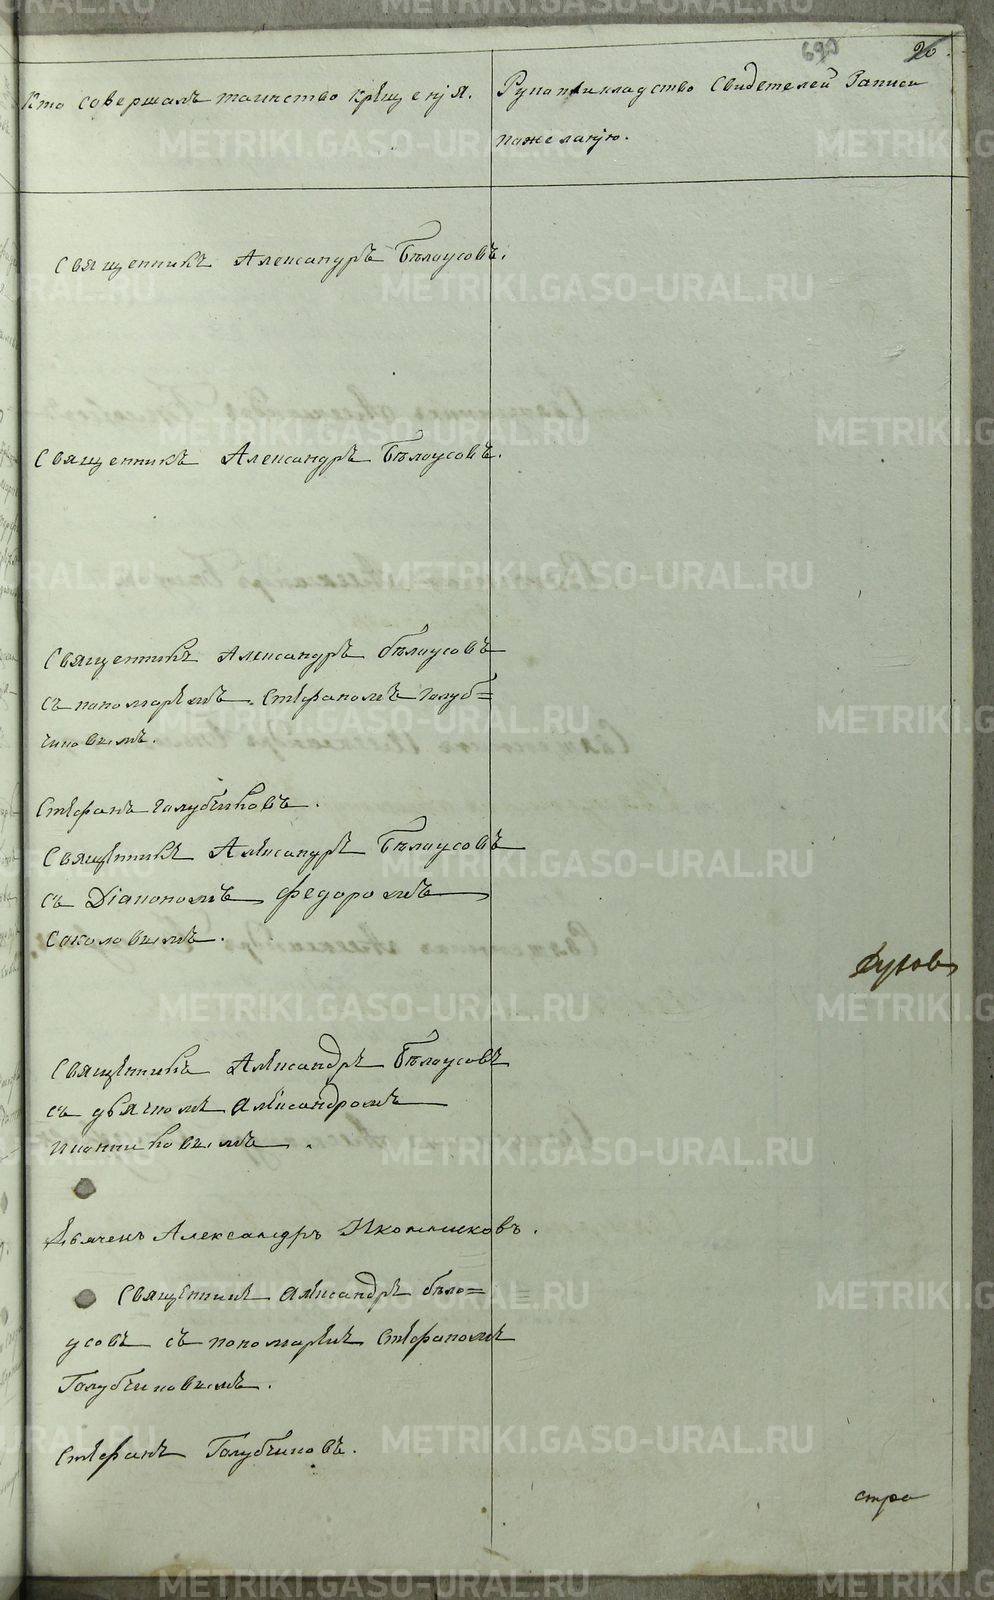 690 26.
Кто совершалъ таинство крещенiя.
Рукоприкладство Свидетелей Записи
пожеланiю.
Священникъ Александръ Бѣлоусовъ.
Священникъ Александръ Бѣлоусовъ.
Священникъ Александръ бѣлоусовъ
съ пономаремъ Стефаномъ Голуб=
чиковымъ.
Стефанъ Голубчиковъ.
Священникъ Александръ Бѣлоусовъ
съ Дiакономъ Федоромъ
Соколовымъ.
Священникъ Александръ Бѣлоусовъ
съ дьячкомъ Александромъ
иконниковымъ.
Дьячекъ Александръ Иконниковъ.
Священникъ Александръ бѣло=
усовъ съ пономаремъ Стефаномъ
Голубчиковымъ.
Стефанъ Голубчиковъ.
стра
METRIKI.GASO-URAL.RU